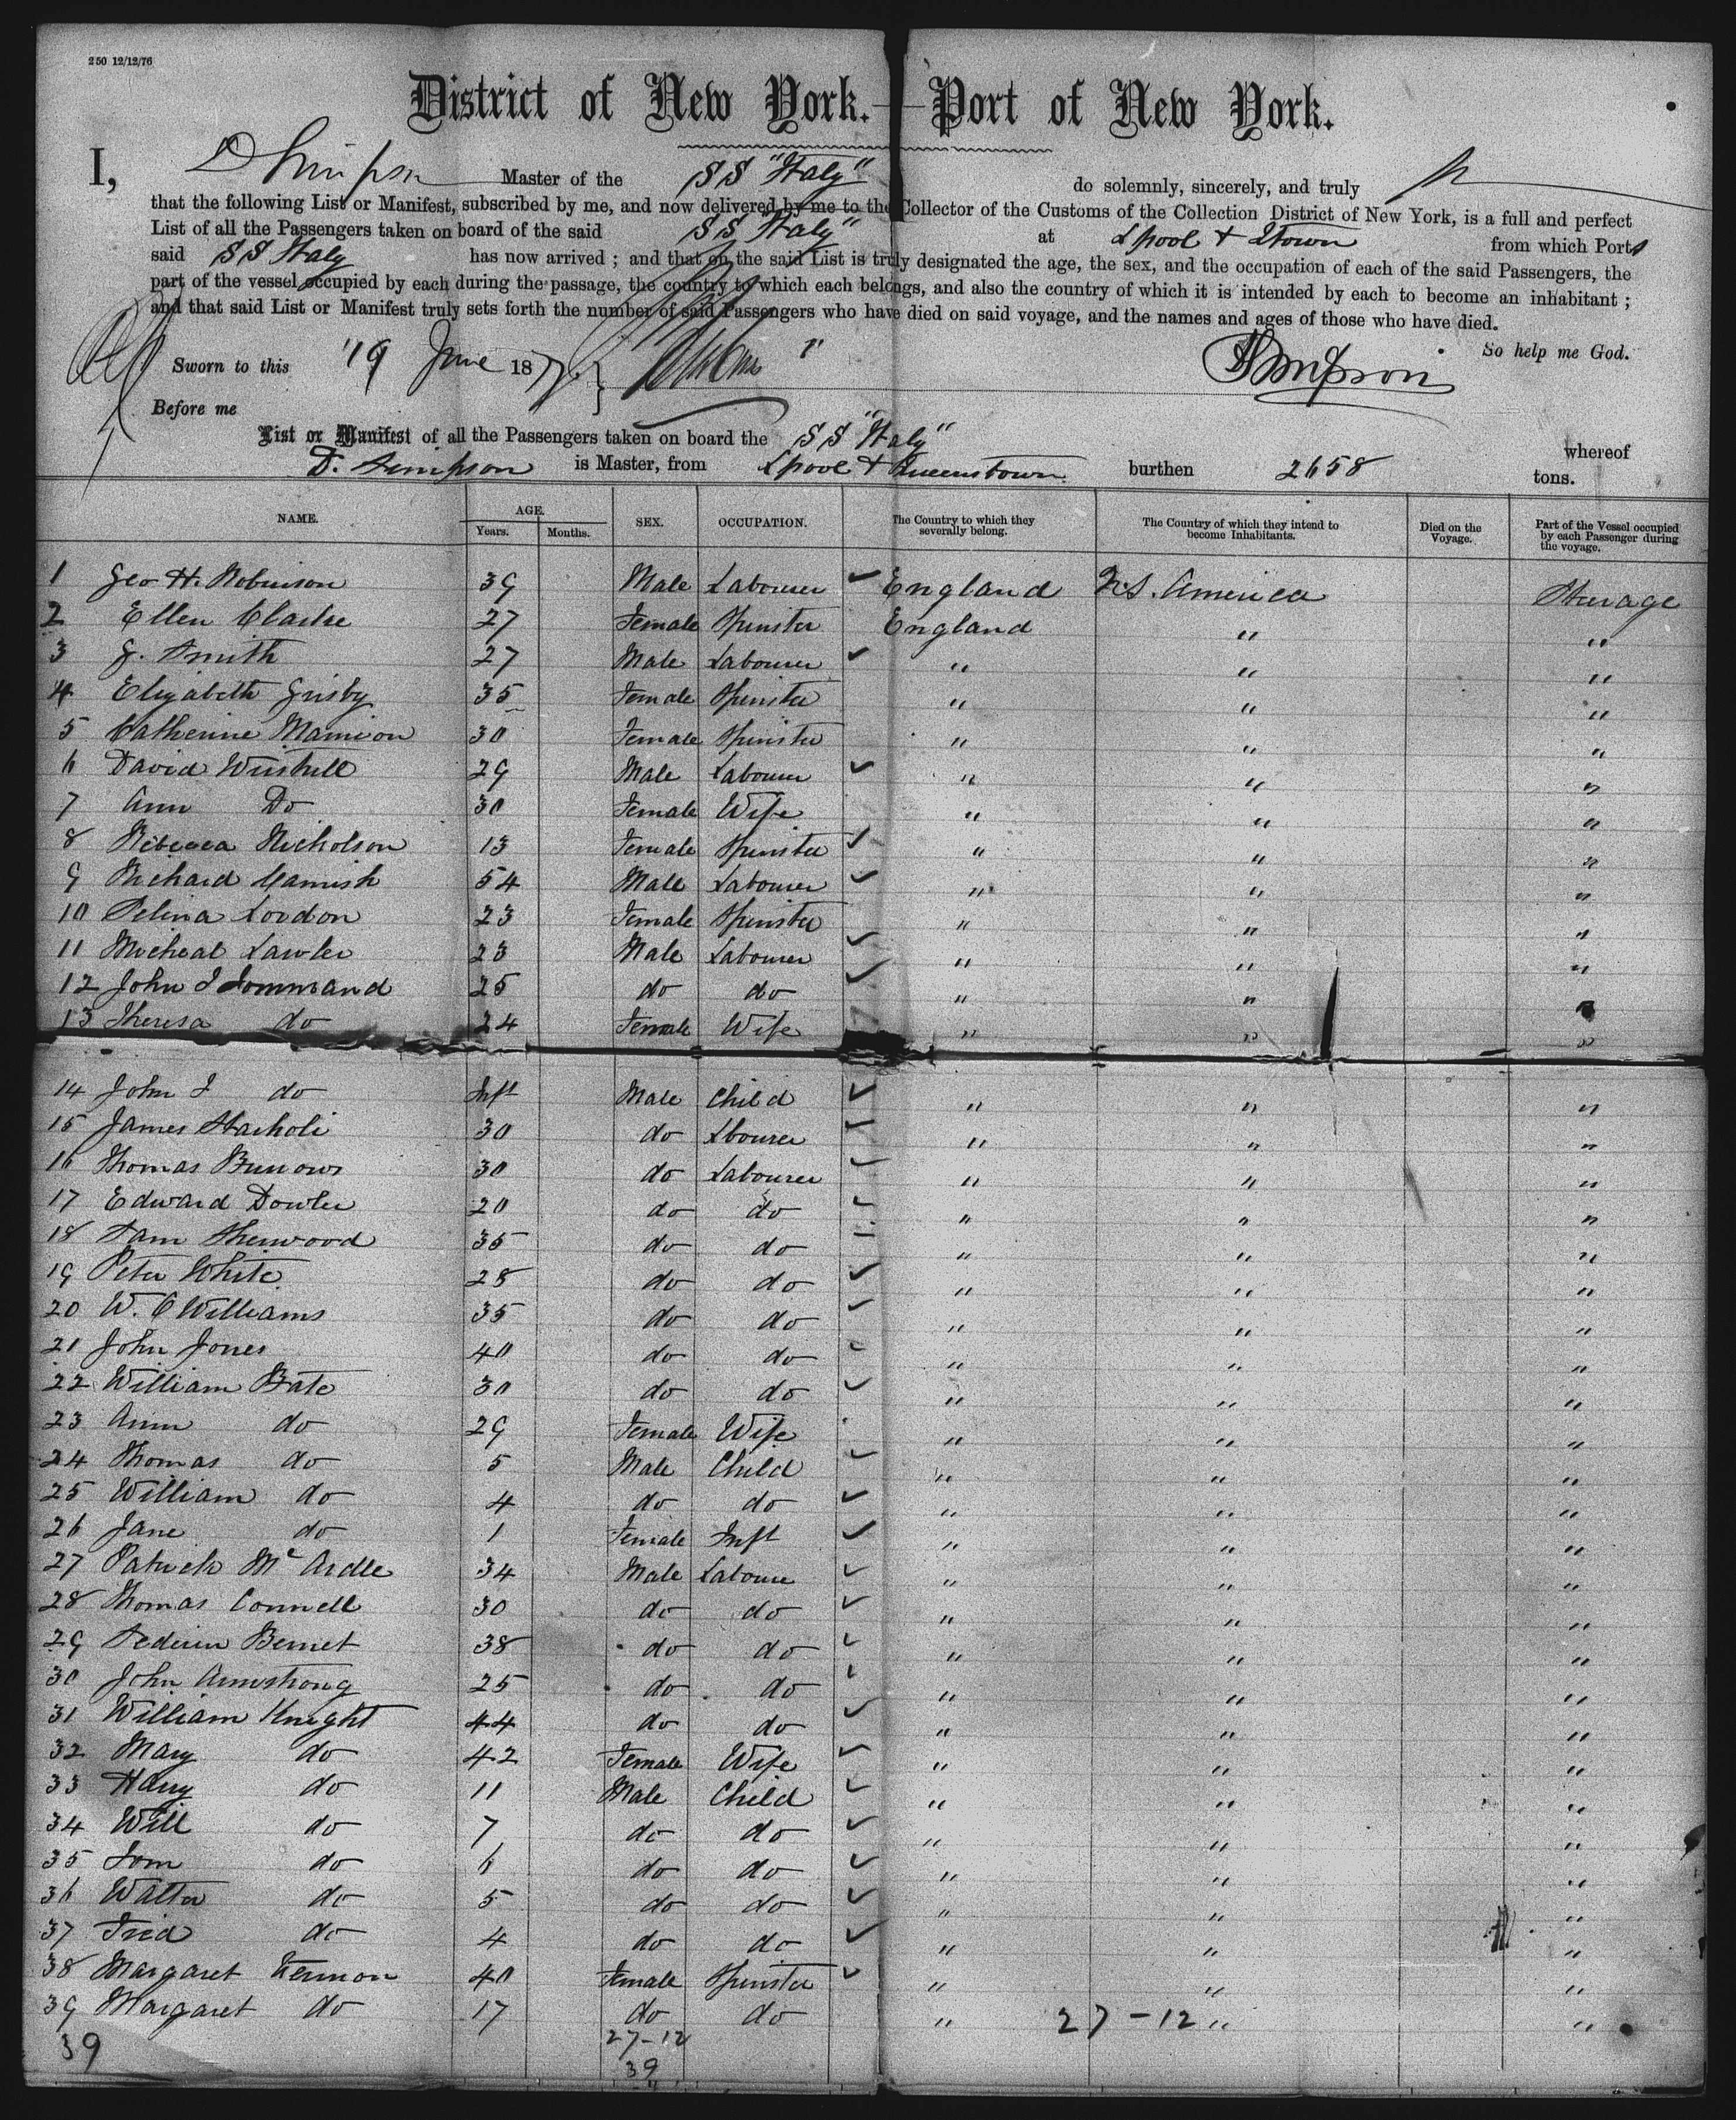 250 12/12/76
District of New York.—Port of New York.
I, D Simpson Master of the SS "Italy" do solemnly, sincerely, and truly
that the following List or Manifest, subscribed by me, and now delivered by me to the Collector of the Customs of the Collection District of New York, is a full and perfect
List of all the Passengers taken on board of the said SS "Italy" at Lpool + Qtown from which Ports
said SS Italy has now arrived ; and that on the said List is truly designated the age, the sex, and the occupation of each of the said Passengers, the
part of the vessel occupied by each during the passage, the country to which each belongs, and also the country of which it is intended by each to become an inhabitant ;
and that said List or Manifest truly sets forth the number of said Passengers who have died on said voyage, and the names and ages of those who have died.
So help me God.
Sworn to this 19 June 187 } DSimpson
Before me
List or Manifest of all the Passengers taken on board the SS "Italy" whereof
D. Simpson is Master, from Lpool + Queenstown. burthen 2658 tons.
NAME. AGE. Years. Months. SEX. OCCUPATION. The Country to which they severally belong. The Country of which they intend to become Inhabitants. Died on the Voyage. Part of the Vessel occupied by each Passenger during the voyage.
1 Geo H. Robinson 39 Male Labourer England N.S. America Steerage
2 Ellen Clarke 27 Female Spinster England " "
3 G. Smith 27 Male Labourer " " "
4 Elizabeth Grisby 35 Female Spinster " " "
5 Catherine Mannion 30 Female Spinster " " "
6 David 29 Male Labourer " " "
7 Ann Do 30 Female Wife " " "
8 Rebecca Nicholson 13 Female Spinster " " "
9 Richard Cannish 54 Male Labourer " " "
10 Selina Loodon 23 Female Spinster " " "
11 Micheal Lawler 23 Male Labourer " " "
12 John J 25 do do " "
13 Theresa do 24 Female Wife " " "
14 John J do Inft Male Child " " "
15 James 30 do Lbourer " " "
16 Thomas Burrows 30 do Labourer " " "
17 Edward Dowler 20 do do " " "
18 Sam Sherwood 35 do do " " "
19 Peter White 28 do do " " "
20 W. C Williams 35 do do " " "
21 John Jones 40 do do " " "
22 William Bate 30 do do " " "
23 Ann do 29 Female Wife " " "
24 Thomas do 5 Male Child " " "
25 William do 4 do do " " "
26 Jane do 1 Female Inft " " "
27 Patrick Mc Ardle 34 Male Laboure " " "
28 Thomas Connell 30 do do " " "
29 Bennet 38 do do " " "
30 John Armstrong 25 do do " " "
31 William Knight 44 do do " " "
32 Mary do 42 Female Wife " " "
33 Harry do 11 Male Child " " "
34 Will do 7 do do " " "
35 Tom do 6 do do " " "
36 Walter do 5 do do " " "
37 Fred do 4 do do " " "
38 Margaret Kennon 40 Female Spinster " " "
39 Margaret do 17 do do " 27-12 " "
39 27-12
39